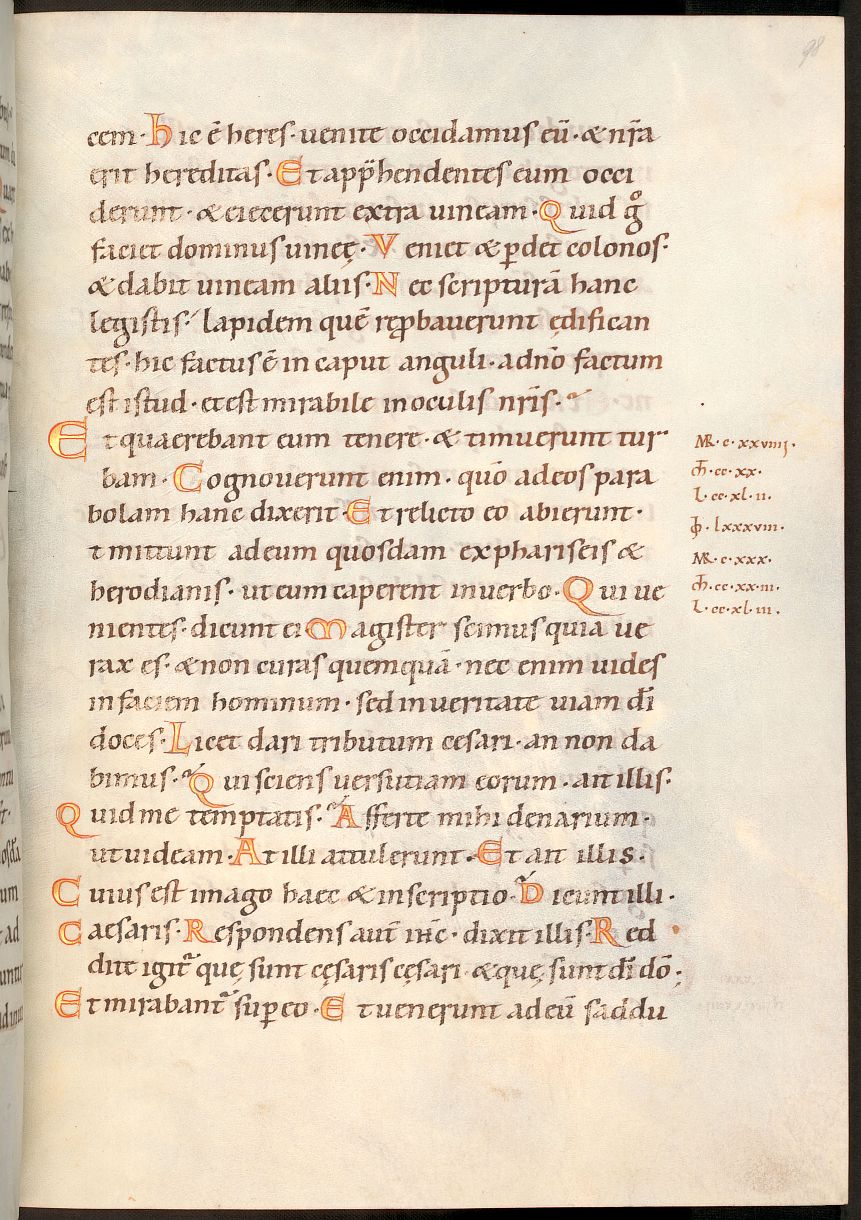 98
cem · Hic ē heres · uenite occidamus eū · & nr̄a
erit hereditas · Et app̄hendentes eum occi
derunt · & eiecerunt extra uineam · Quid g̊
faciet dominus uineę · Veniet & p̱det colonos ·
& dabit uineam aliis · Nec scripturā hanc
legistis · lapidem quē rep̱bauerunt ędifican
tes · hic factus ē in caput anguli · a dn̄o factum
est istud · et est mirabile in oculis nr̄is ·
Et quaerebant eum tenere · & timuerunt tur
bam · Cognouerunt enim · quō ad eos para
bolam hanc dixerit · Et relicto eo abierunt ·
t mittunt ad eum quosdam ex phariseis &
herodianis · ut eum caperent in uerbo · Qui ue
nientes · dicunt ei Magister scimus quia ue
rax es · & non curas quemquā · nec enim uides
in faciem hominum · sed in ueritate uiam dī
doces · Licet dari tributum cesari · an non da
bimus · Qui sciens uersutiam eorum · ait illis ·
Quid me temptatis · Afferte mihi denarium ·
ut uideam · At illi attulerunt · Et ait illis ·
Cuius est imago haec & inscriptio · Dicunt illi ·
Caesaris · Respondens aut̄ ih̄c · dixit illis · Red
dite igit̄ quę sunt cęsaris cęsari · & quę sunt dī dō ;
Et mirabant̄ sup̱ eo · Et uenerunt ad eū saddu
MR · c · xxviiii ·
M̄ · cc · xx ·
L · cc · xl · ii ·
IO · lxxxviii ·
MR · c · xxx ·
M̄ · cc · xx · iii ·
L · cc · xl · iii ·